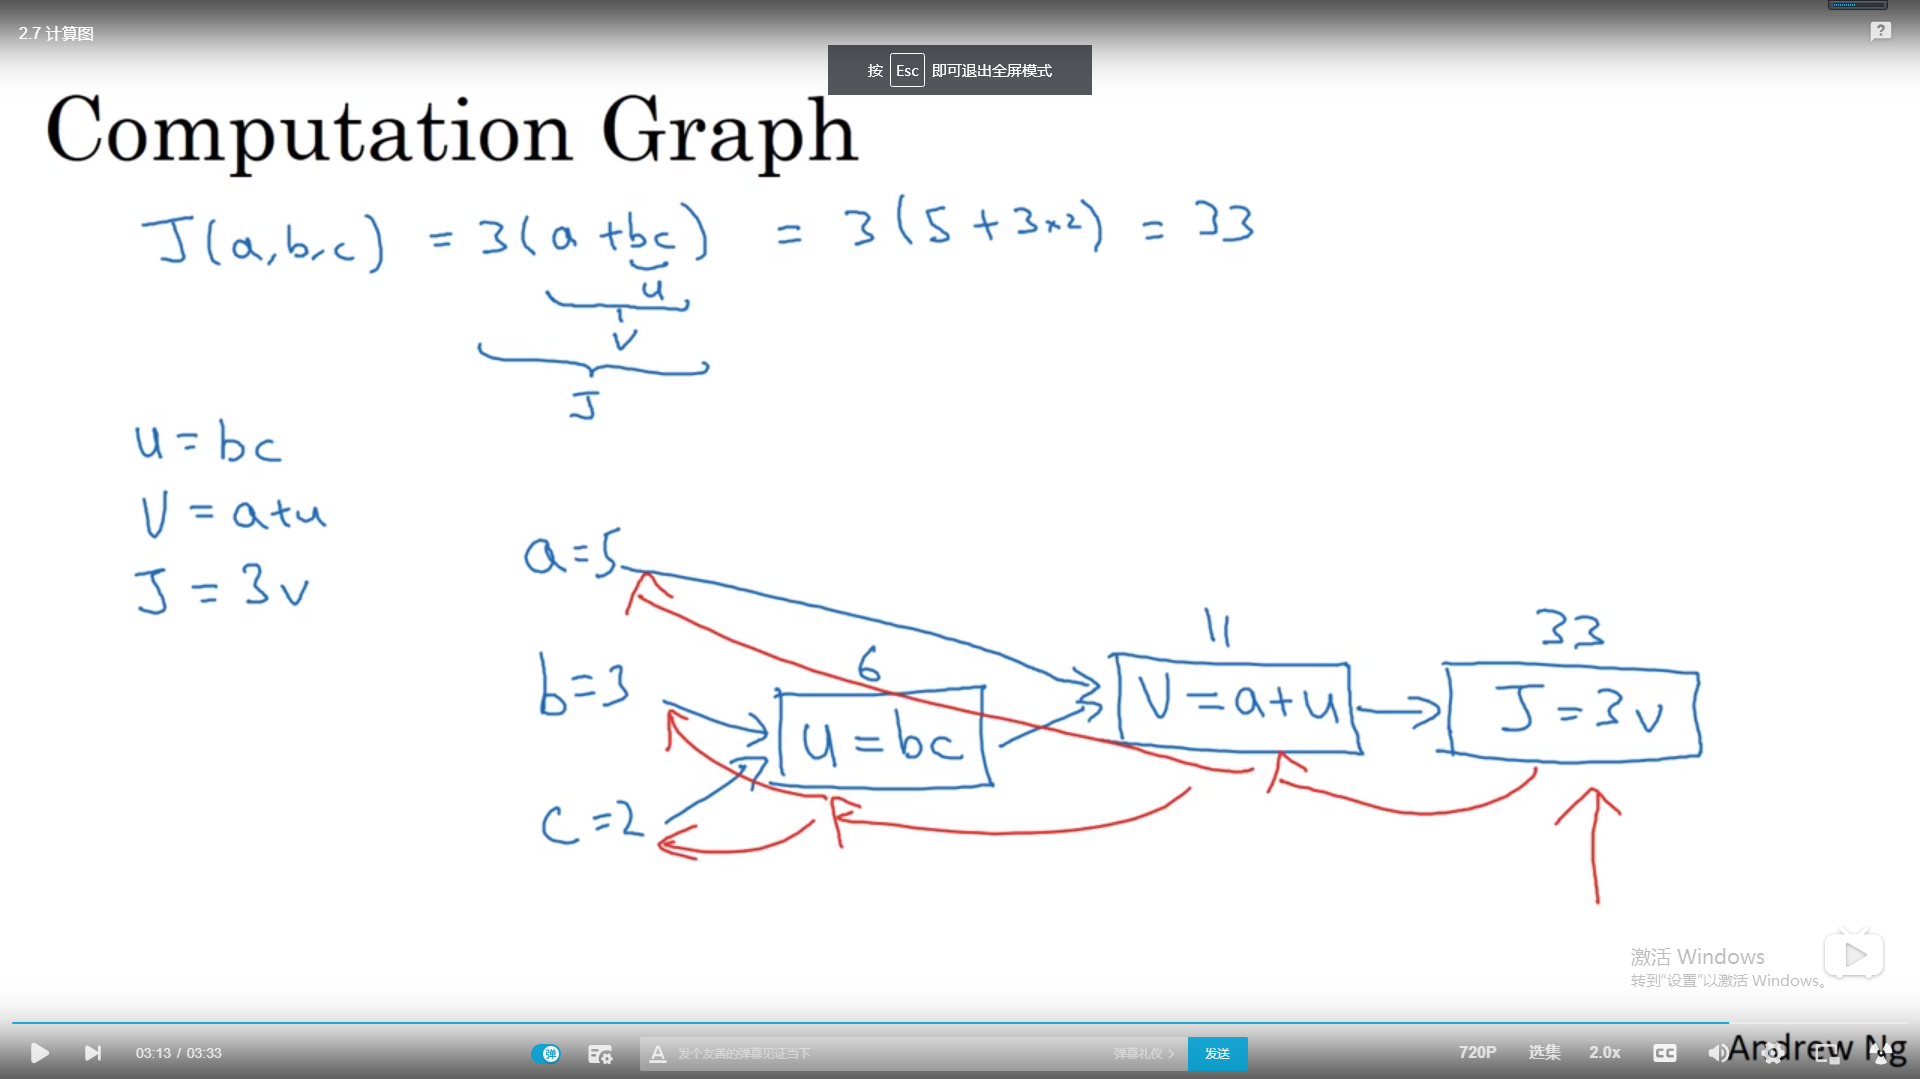 2.7 计算图
按 Esc 即可退出全屏模式
Computation Graph
J(a,b,c) = 3(a+bc) = 3(5+3×2) = 33
u
v
J
u = bc
V = a+u
J = 3v
a=5
11
33
b=3
6
V = a+u
J = 3v
u = bc
c=2
激活 Windows
转到“设置”以激活 Windows。
03:13 / 03:33
弹
A 发个友善的弹幕见证当下
弹幕礼仪 >
发送
720P
选集
2.0x
CC
Andrew Ng